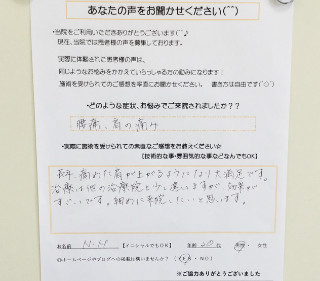 あなたの声をお聞かせください(^^)
・当院をご利用いただきありがとうございます(^^♪
現在、当院では患者様の声を募集しております。
実際に体感された患者様の声は、
同じようなお悩みをかかえていらっしゃる方の励みになります!
施術を受けられてのご感想を率直にお聞かせください。 書き方は自由です(^O^)
・どのような症状、お悩みでご来院されましたか??
腰痛、肩の痛み
・実際に施術を受けられての素直なご感想をお教えください☆
【技術的な事・雰囲気的な事などなんでもOK】
長年痛めた肩が上がるようになり大満足です。
治療は他の治療院と少し違いますが、効果が
すごいです。細めに来院したいと思います。
お名前 N.H 【イニシャルでもOK】 年齢 男性 ・ 女性
◎ホームページやブログへの掲載は構いませんか? (YES ・ NO)
※ご協力ありがとうございました